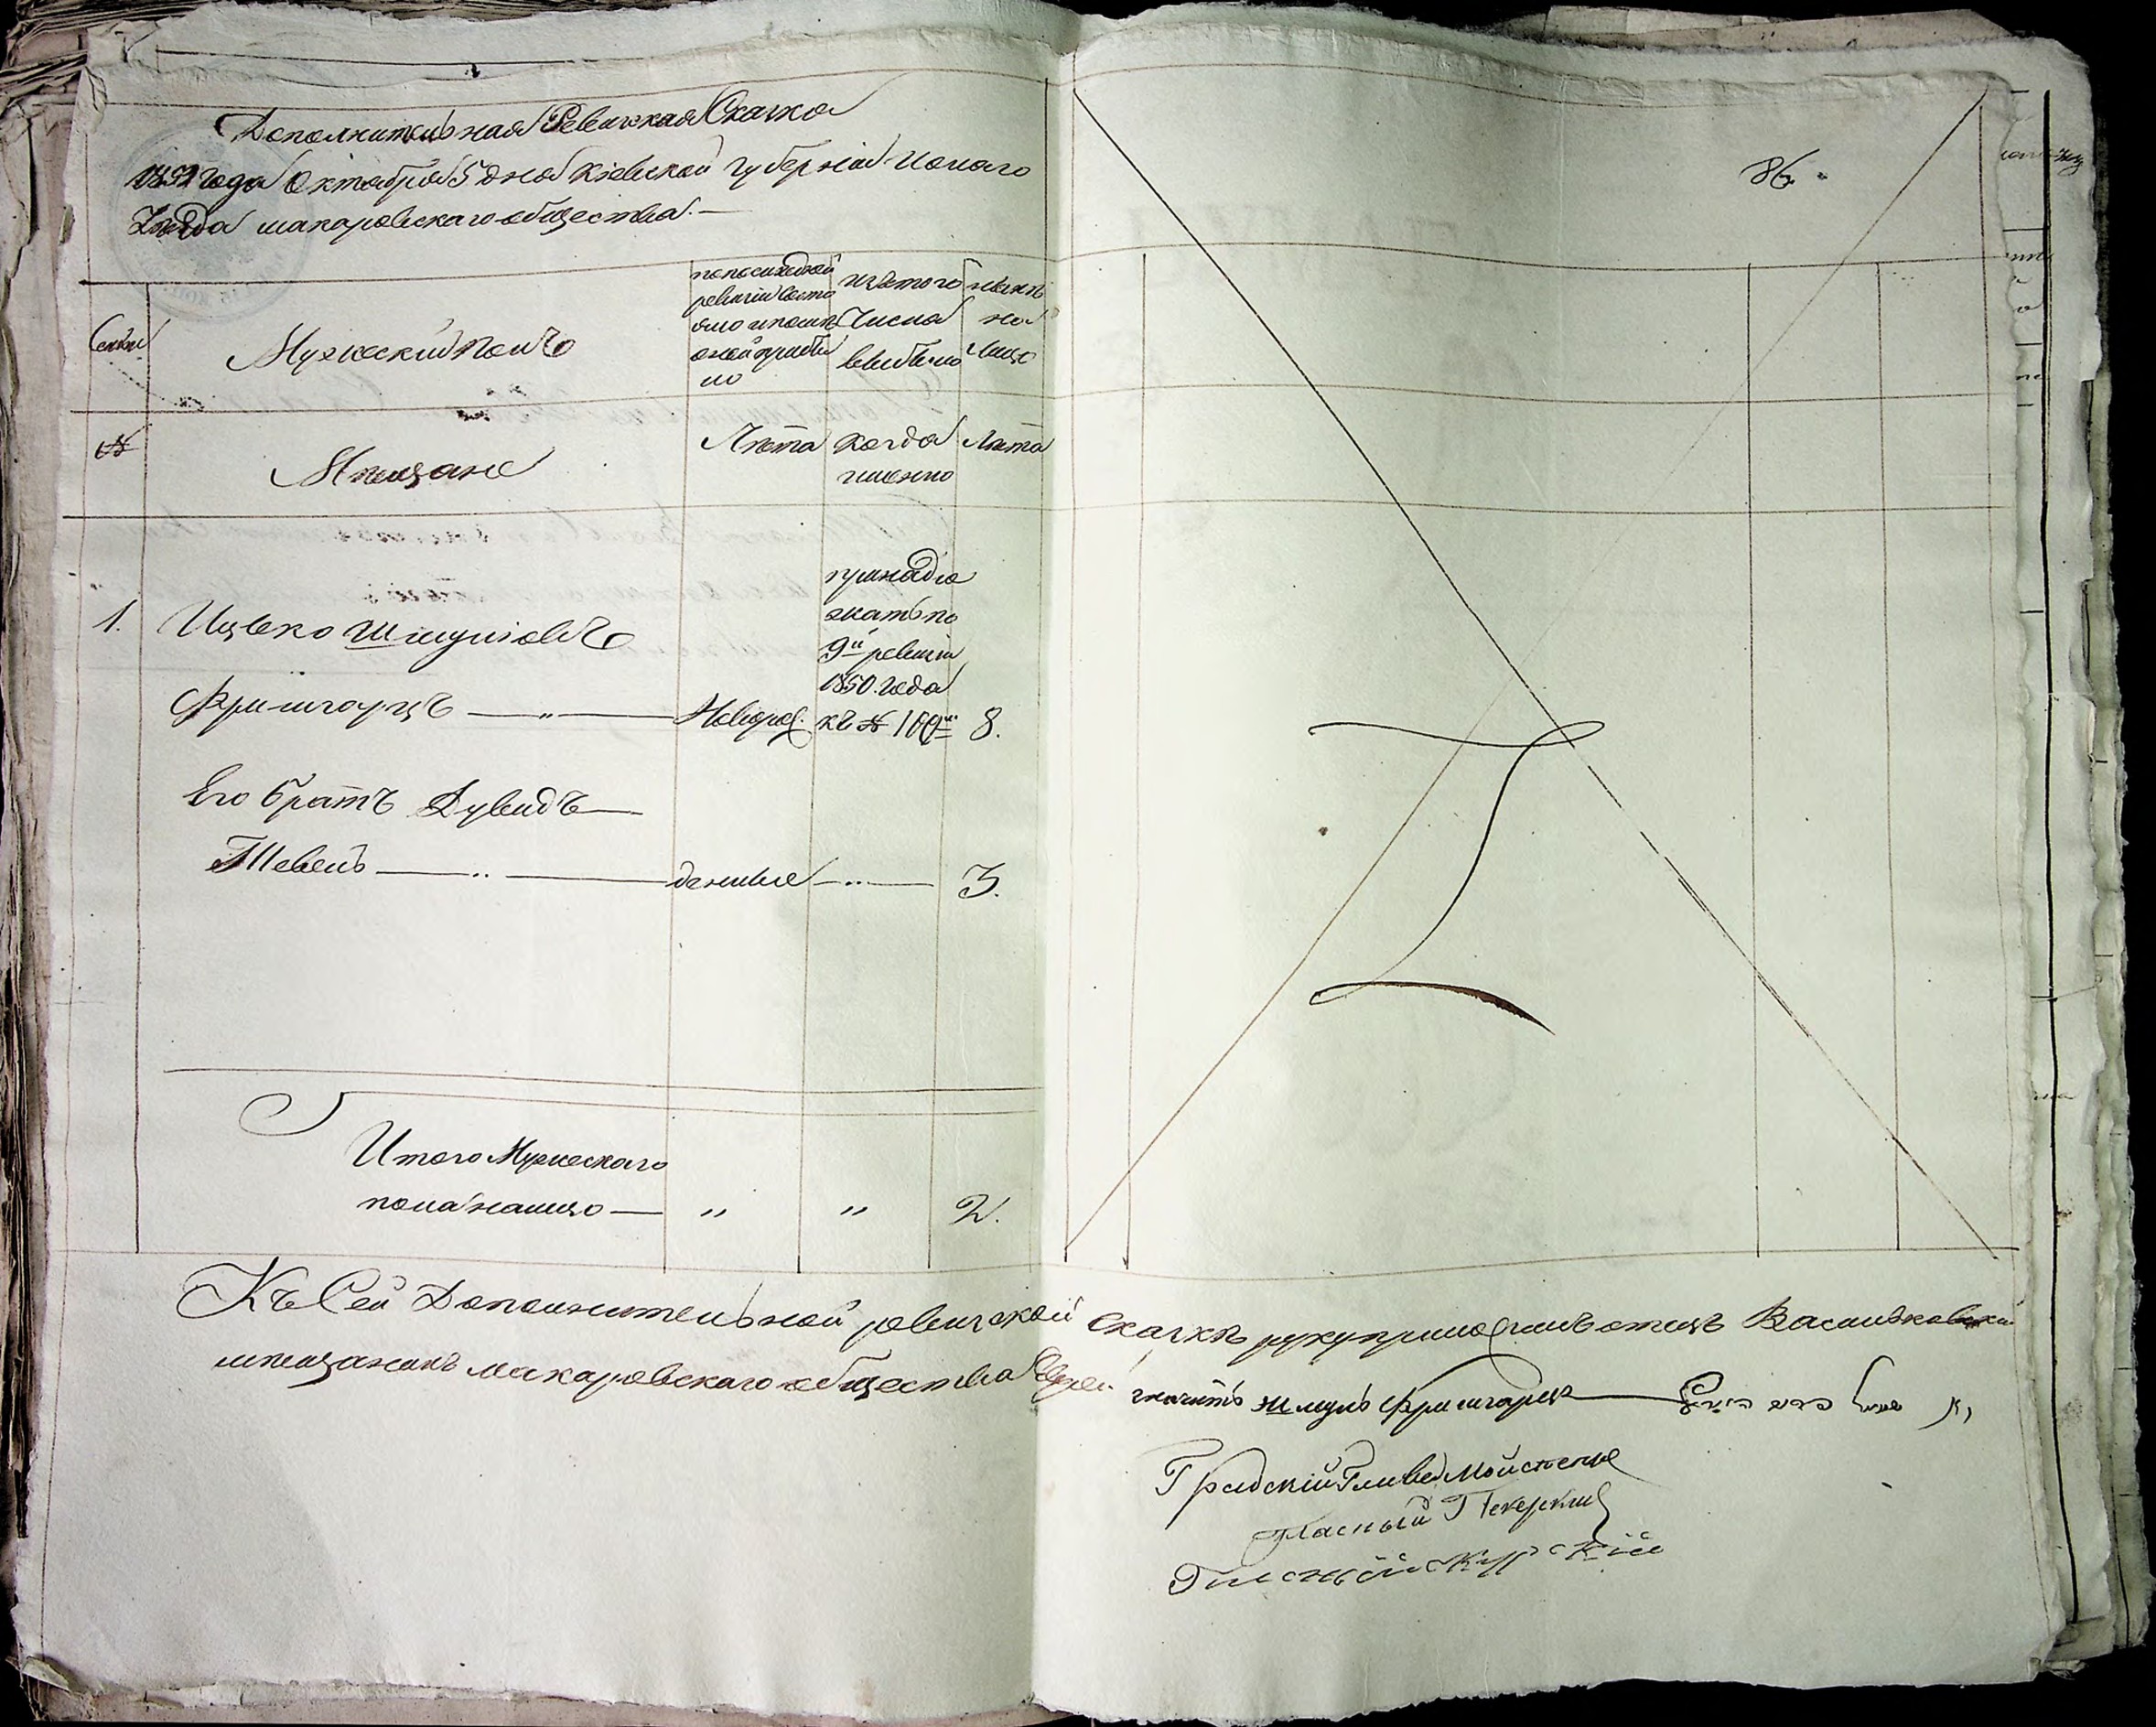 Дополнительная Ревизская Сказка
года Октября 5 дня Кіевской Губерніи
Уезда макаровскаго общества. —
86.
Семьи
Мужескій полъ
по последней
ревизіи состо
яло и после
оной прибы
ло
изъ того
Числа
выбыло
ныне
на
лицо
№
Мещане
Лета
когда
именно
Лета
1. Ицько Шмуліовъ
Фримгарцъ — „ — Новорож. 8.
принадле
жатъ по
9й ревизіи
1850. года
къ №
Его братъ Дувидъ —
Шевель — „ — — „ — 3.
Итого Мужескаго
пола налицо — „ „ 2.
Къ Сей Дополнительной ревизской Сказке руку приложилъ отецъ Васильковскій
мещанинъ макаровскаго общества Еврей Шмуль Фримгарцъ —
Градскій Глава
Гласный
Гласный